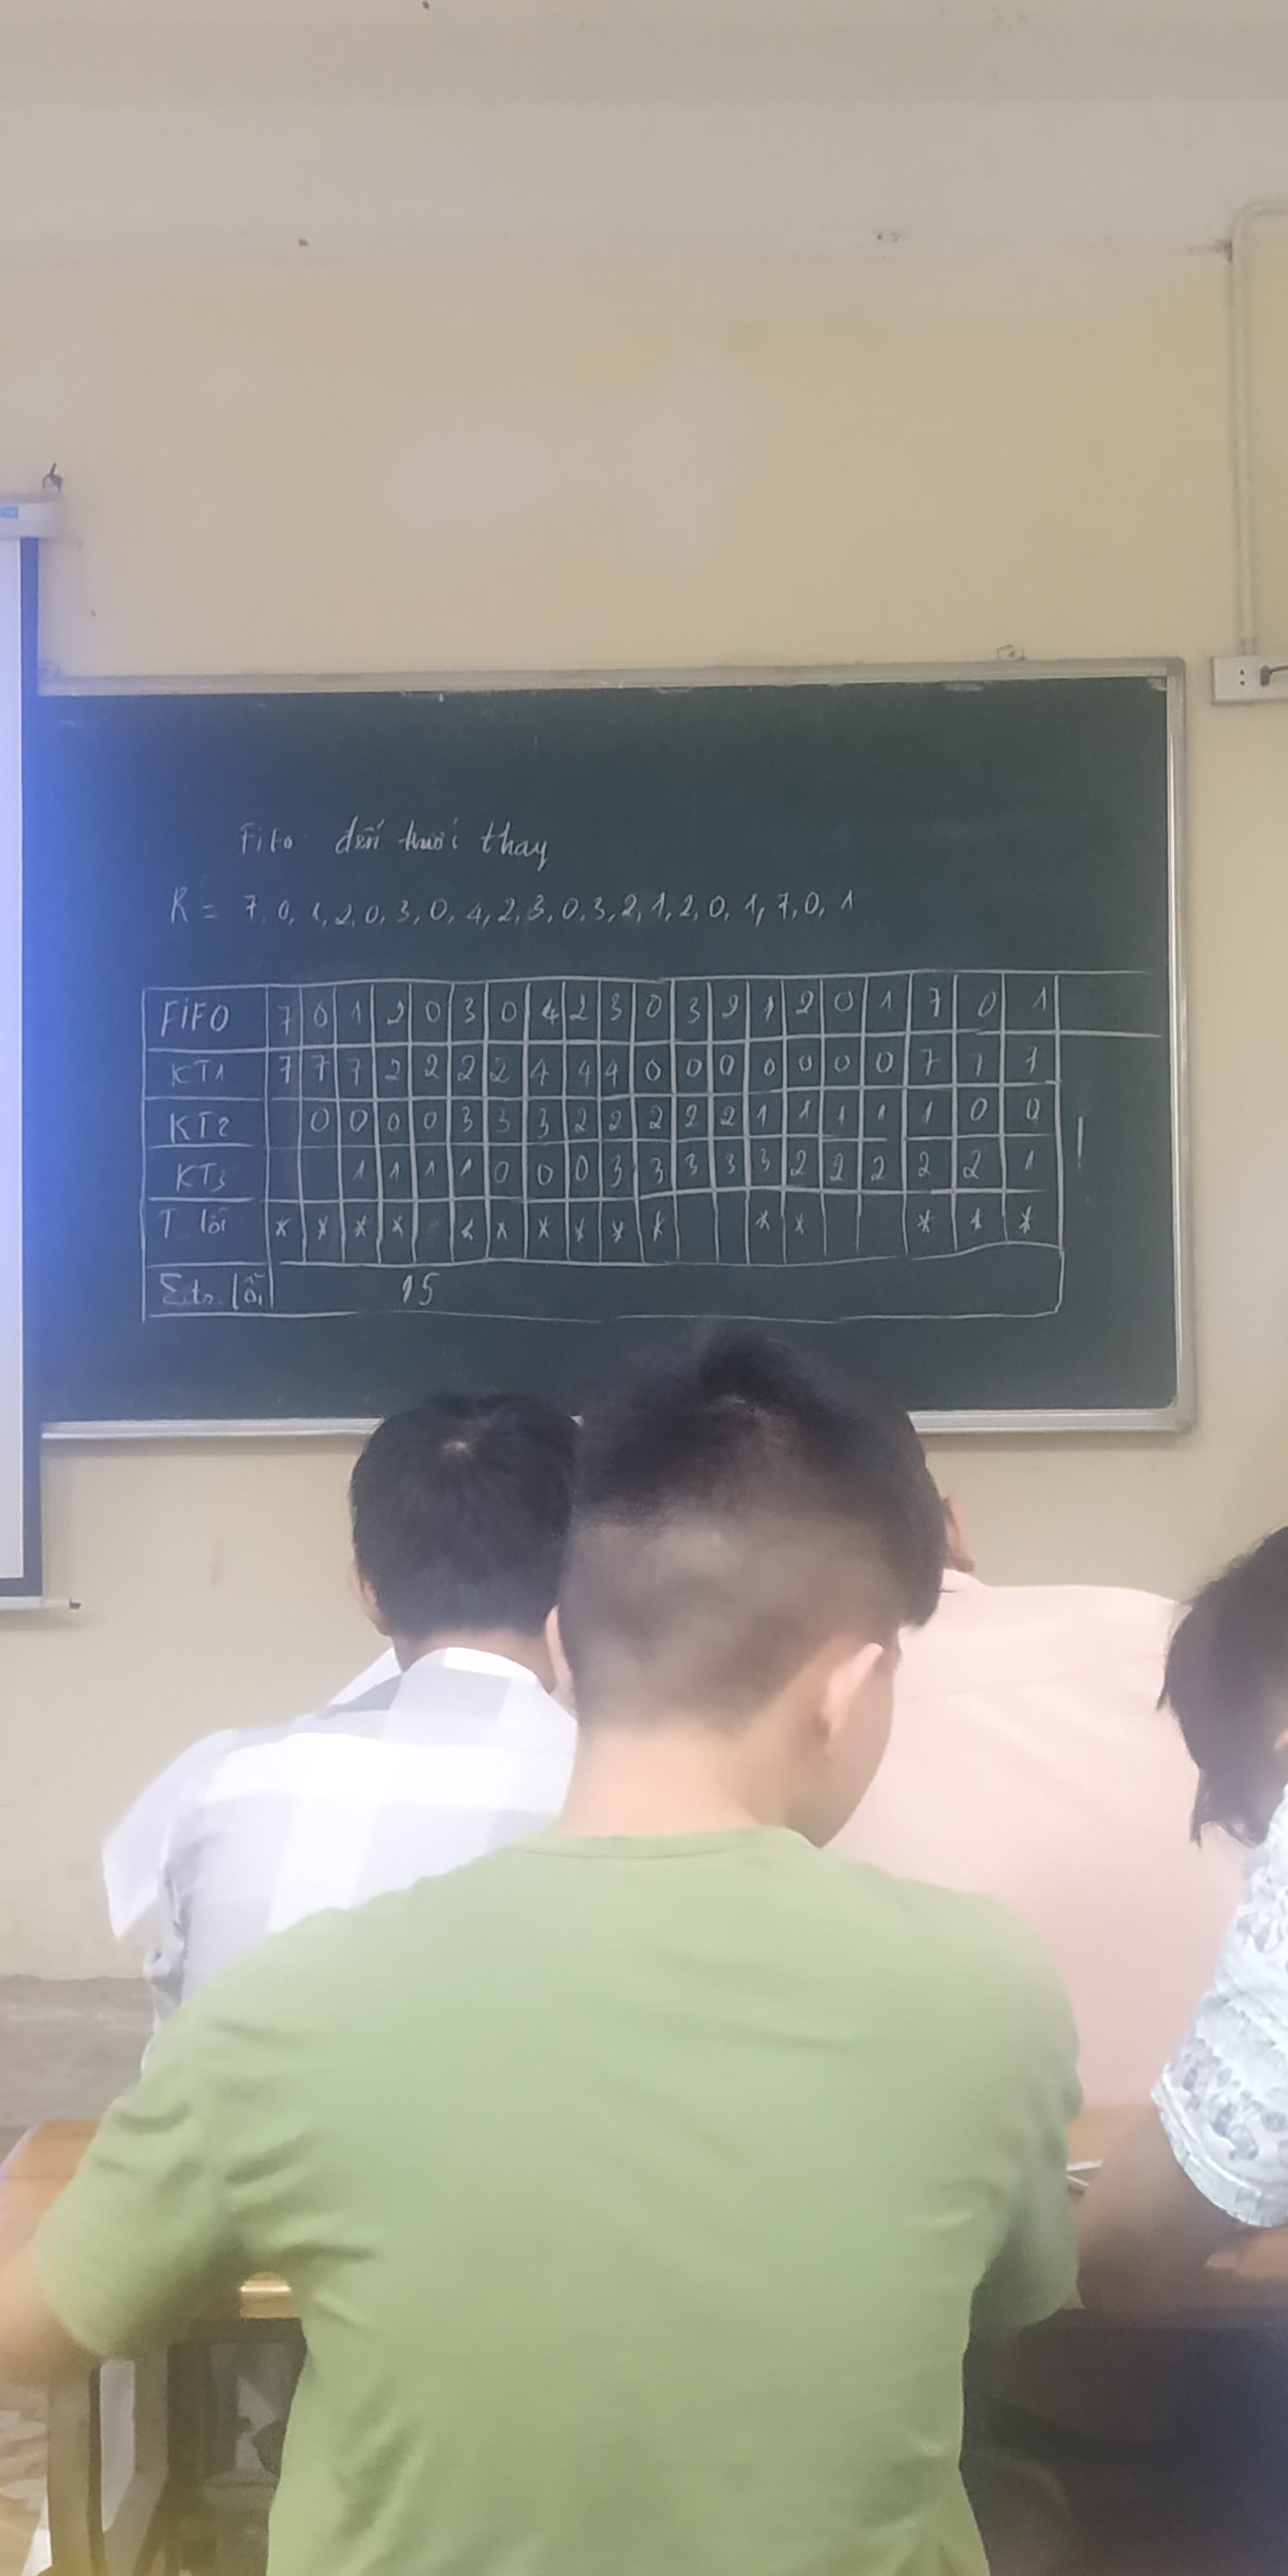 Fifo đến trước thay
R = 7, 0, 1, 2, 0, 3, 0, 4, 2, 3, 0, 3, 2, 1, 2, 0, 1, 7, 0, 1
FiFO 7 0 1 2 0 3 0 4 2 3 0 3 2 1 2 0 1 7 0 1
KT1 7 7 7 2 2 2 2 4 4 4 0 0 0 0 0 0 0 7 7 7
KT2 0 0 0 0 3 3 3 2 2 2 2 2 1 1 1 1 1 0 0
KT3 1 1 1 1 0 0 0 3 3 3 3 3 2 2 2 2 2 1
T lỗi * * * * * * * * * * * * * * *
Σ.tr.lỗi 15